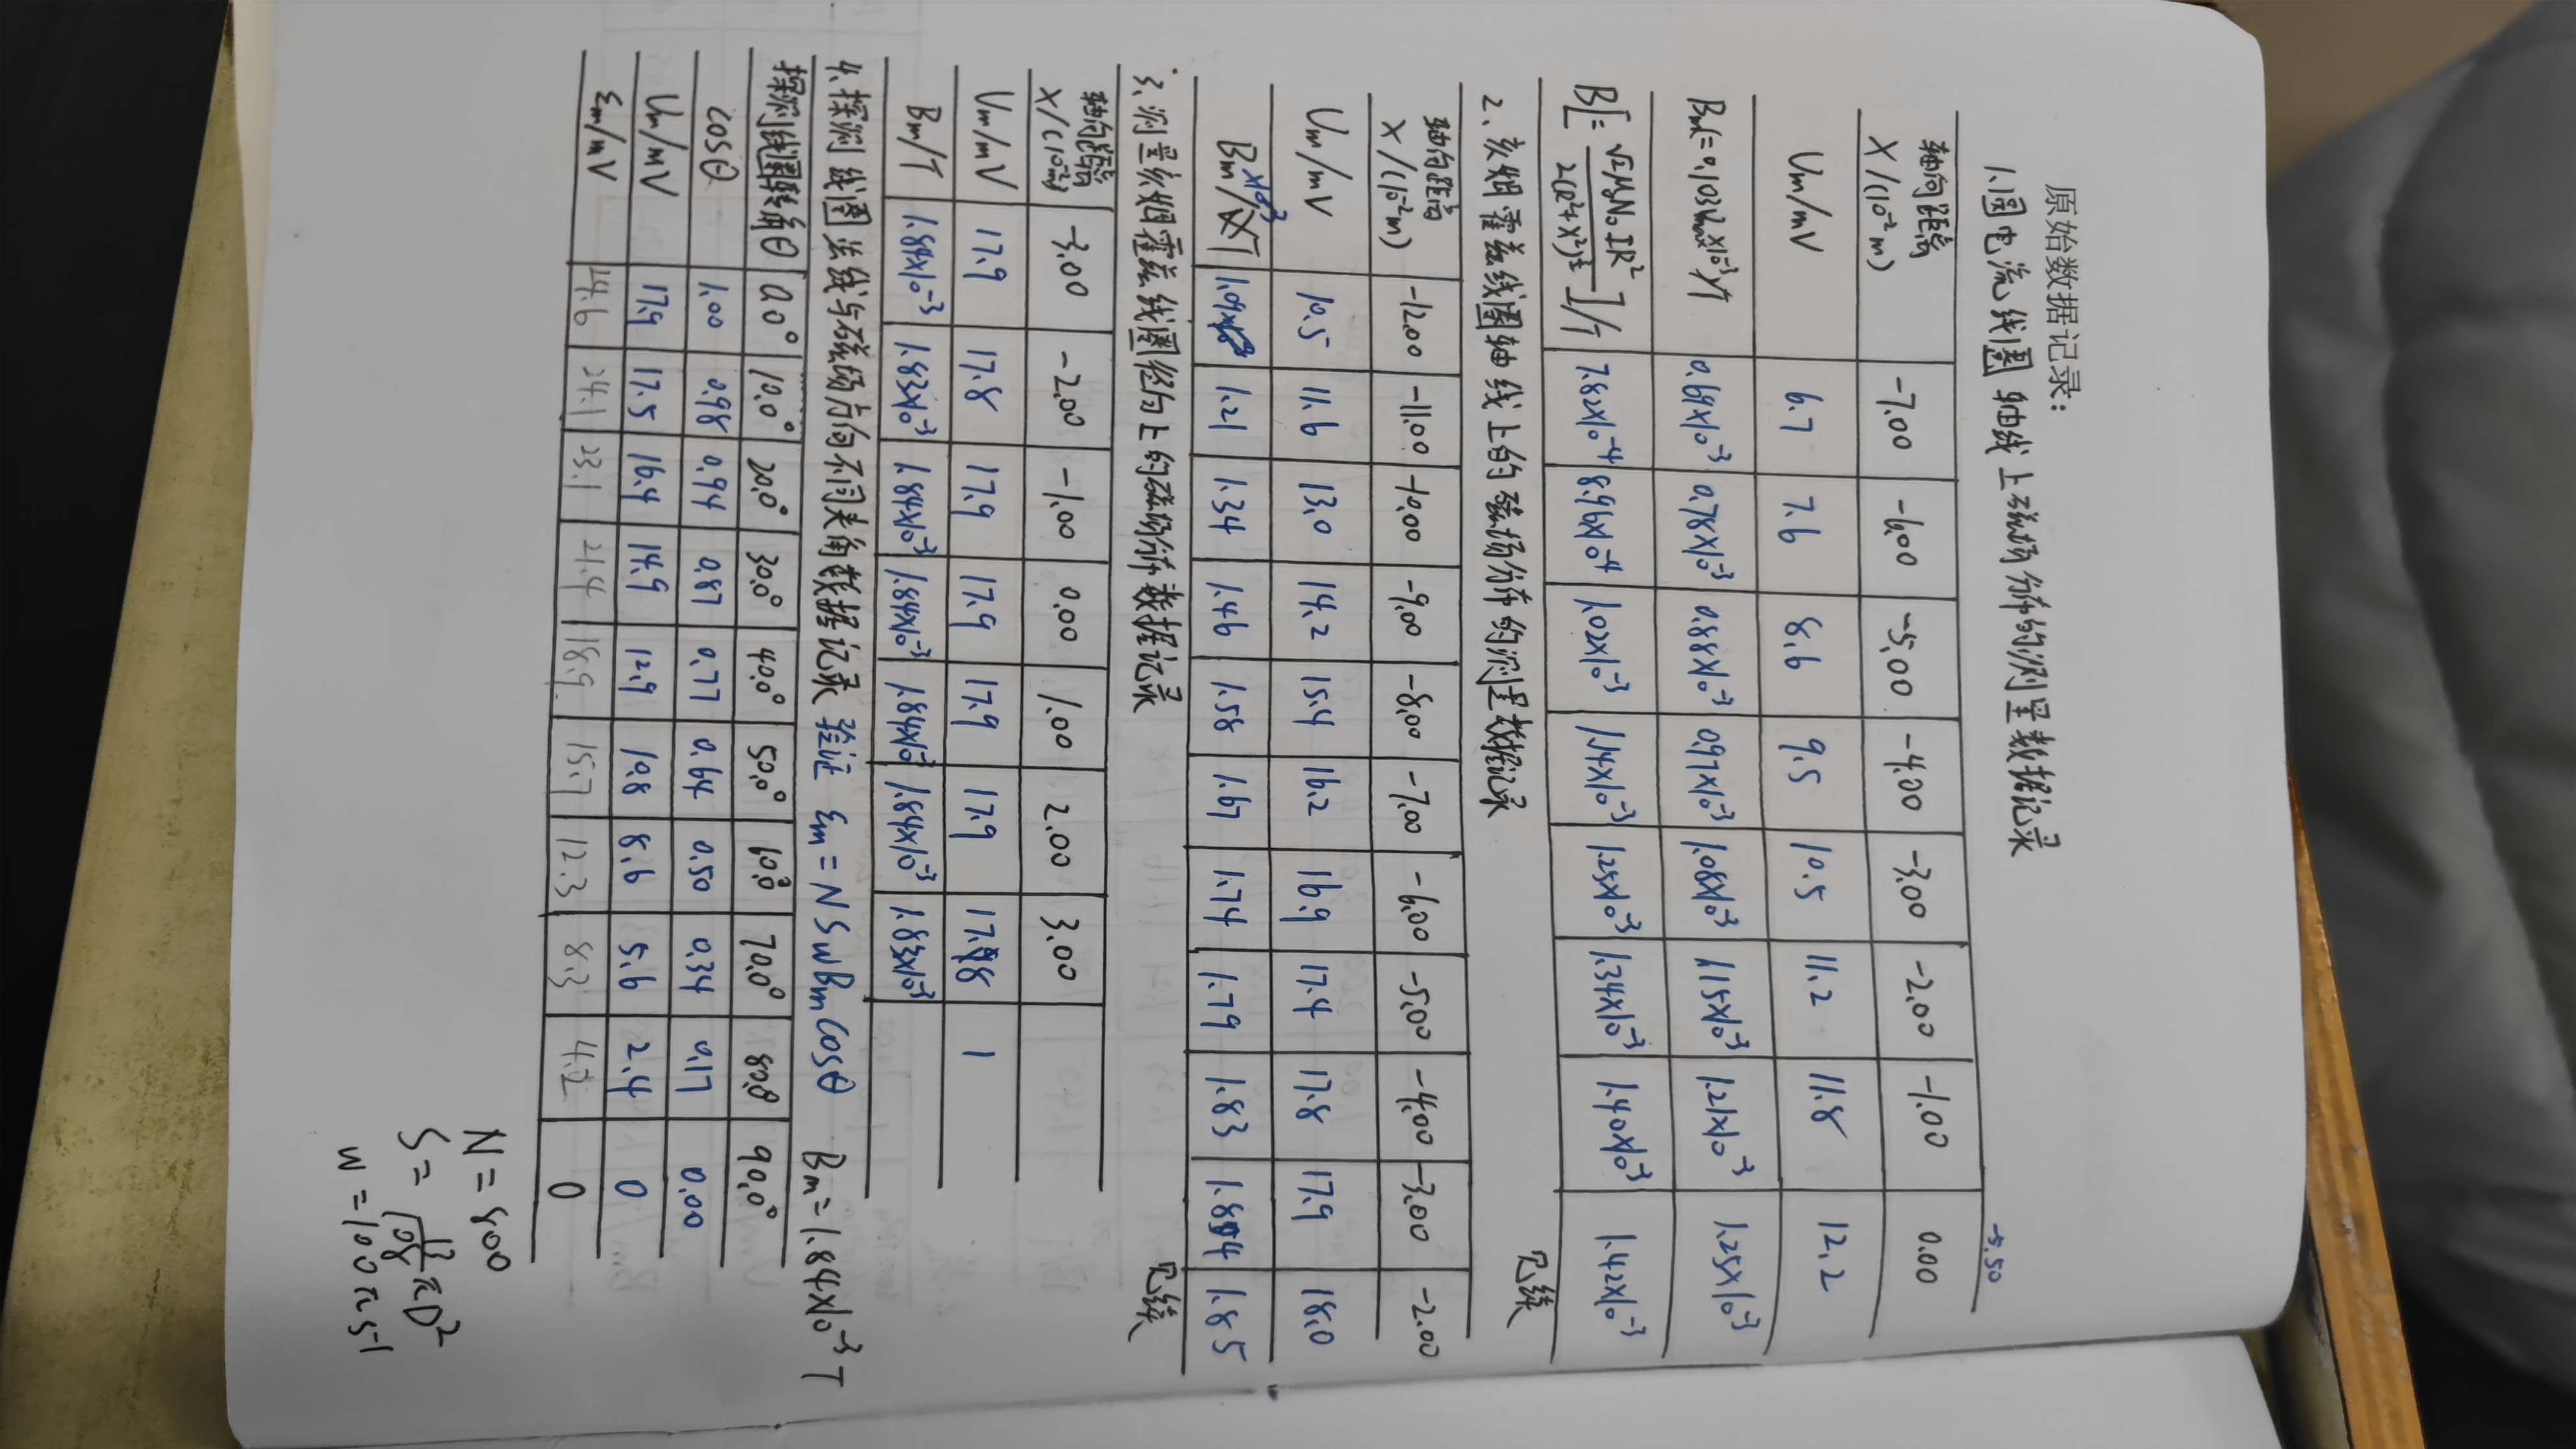 原始数据记录：
1.圆电流线圈轴线上磁场分布的测量数据记录
-5.50
轴向距离 X/(10⁻²m) -7.00 -6.00 -5.00 -4.00 -3.00 -2.00 -1.00 0.00
Um/mV 6.7 7.6 8.6 9.5 10.5 11.2 11.8 12.2
Bm(=0.103Umax×10⁻³)/T 0.69×10⁻³ 0.78×10⁻³ 0.88×10⁻³ 0.97×10⁻³ 1.08×10⁻³ 1.15×10⁻³ 1.21×10⁻³ 1.25×10⁻³
B[=√2μ₀N₀IR²/2(R²+X²)^(3/2)]/T 7.82×10⁻⁴ 8.96×10⁻⁴ 1.02×10⁻³ 1.14×10⁻³ 1.25×10⁻³ 1.34×10⁻³ 1.40×10⁻³ 1.42×10⁻³
见续
2、亥姆霍兹线圈轴线上的磁场分布的测量数据记录
轴向距离 X/(10⁻²m) -12.00 -11.00 -10.00 -9.00 -8.00 -7.00 -6.00 -5.00 -4.00 -3.00 -2.00
Um/mV 10.5 11.6 13.0 14.2 15.4 16.2 16.9 17.4 17.8 17.9 18.0
Bm/×10⁻³T 1.09 1.21 1.34 1.46 1.58 1.67 1.74 1.79 1.83 1.84 1.85
见续
3、测量亥姆霍兹线圈径向上的磁场分布数据记录
轴向距离 X/(10⁻²m) -3.00 -2.00 -1.00 0.00 1.00 2.00 3.00
Um/mV 17.9 17.8 17.9 17.9 17.9 17.9 17.8
Bm/T 1.84×10⁻³ 1.83×10⁻³ 1.84×10⁻³ 1.84×10⁻³ 1.84×10⁻³ 1.84×10⁻³ 1.83×10⁻³
4.探测线圈法线与磁场方向不同夹角数据记录 验证 εm=NSωBmCosθ Bm=1.84×10⁻³T
探测线圈转角θ 0.0° 10.0° 20.0° 30.0° 40.0° 50.0° 60.0° 70.0° 80.0° 90.0°
cosθ 1.00 0.98 0.94 0.87 0.77 0.64 0.50 0.34 0.17 0.00
Um/mV 17.9 17.5 16.4 14.9 12.9 10.8 8.6 5.6 2.4 0
εm/mV 14.6 24.1 23.1 21.4 18.9 15.7 12.3 8.3 4.2 0
N=800
S=13/108 πD²
w=100πs⁻¹